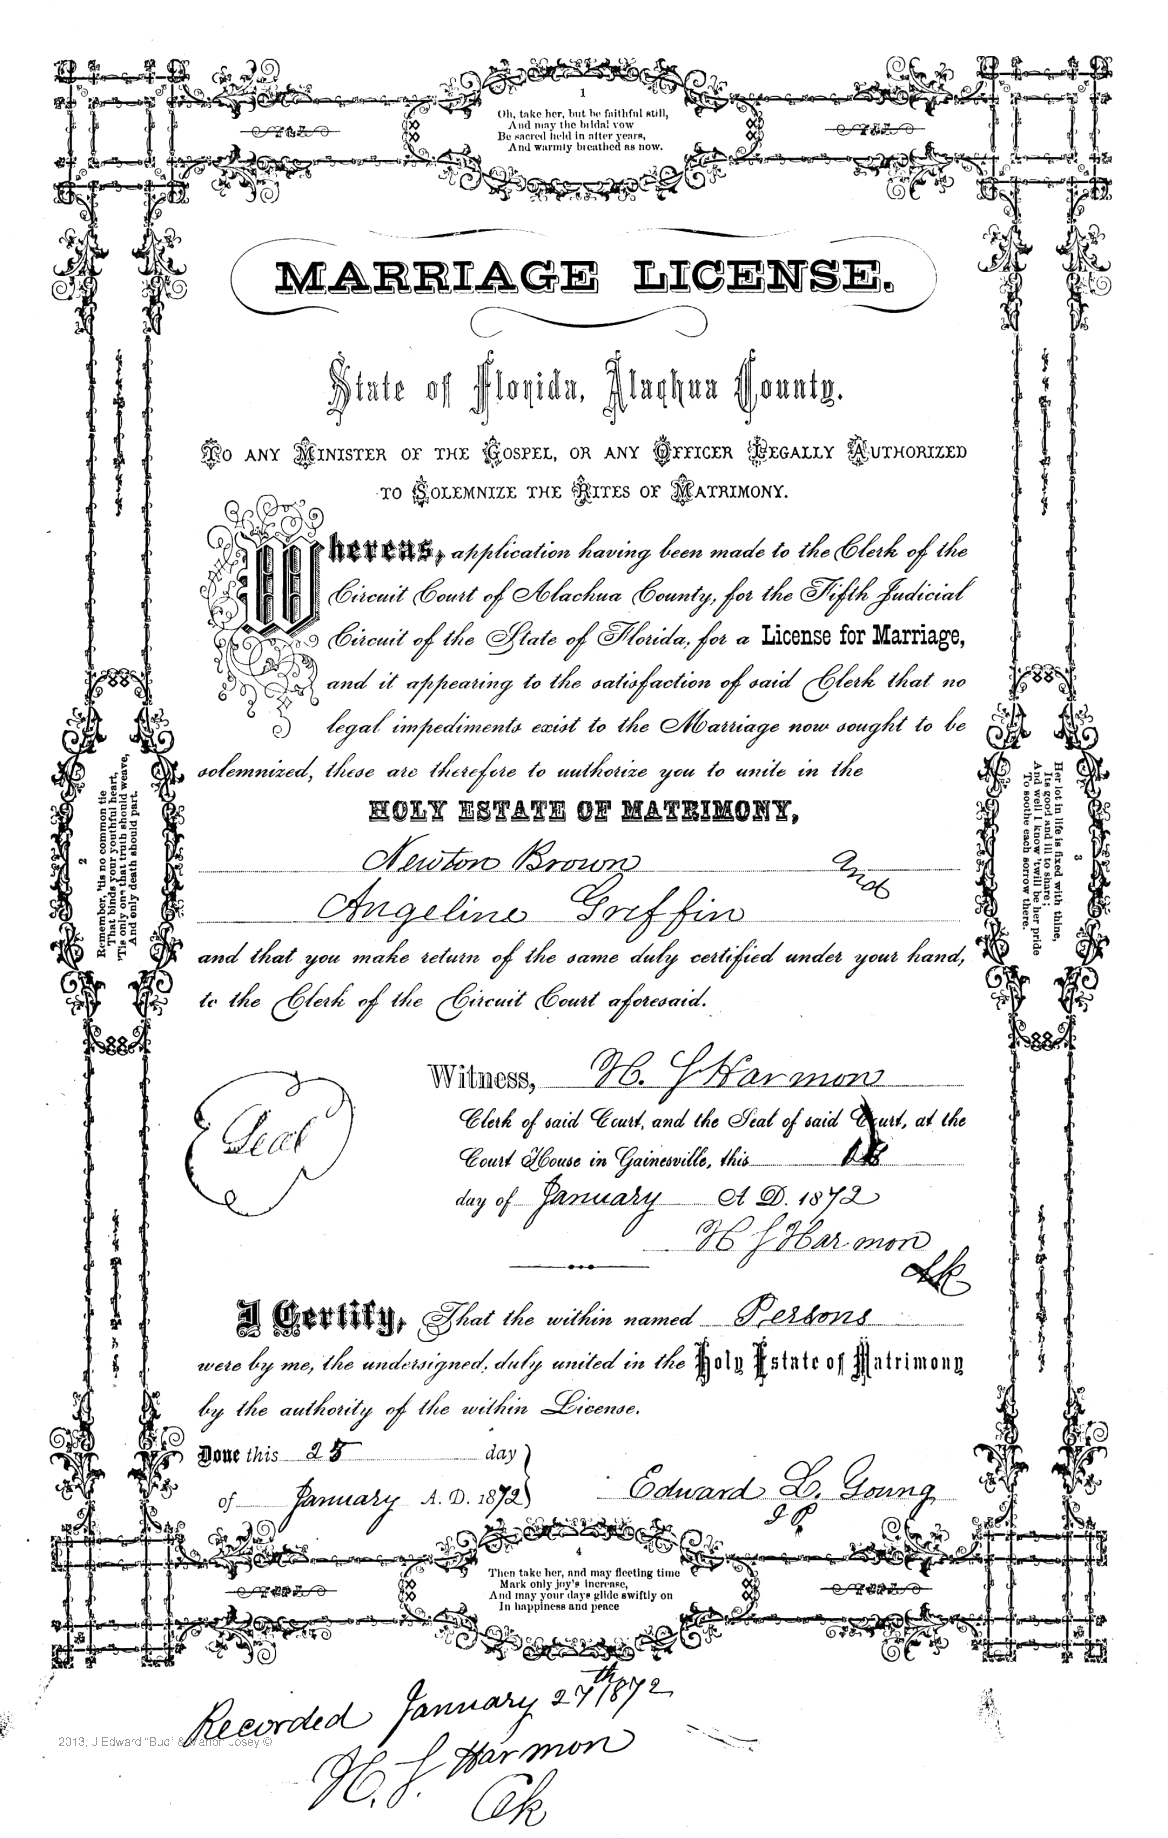 1
Oh, take her, but be faithful still,
And may the bridal vow
Be sacred held in after years,
And warmly breathed as now.
MARRIAGE LICENSE.
State of Florida, Alachua County.
TO ANY MINISTER OF THE GOSPEL, OR ANY OFFICER LEGALLY AUTHORIZED
TO SOLEMNIZE THE RITES OF MATRIMONY.
Whereas, application having been made to the Clerk of the
Circuit Court of Alachua County, for the Fifth Judicial
Circuit of the State of Florida, for a License for Marriage,
and it appearing to the satisfaction of said Clerk that no
legal impediments exist to the Marriage now sought to be
solemnized, these are therefore to authorize you to unite in the
HOLY ESTATE OF MATRIMONY,
Newton Brown and
Angeline Greffin
and that you make return of the same duly certified under your hand,
to the Clerk of the Circuit Court aforesaid.
2
Remember, 'tis no common tie
That binds your youthful heart,
'Tis only one that truth should weave,
And only death should part.
3
Her lot in life is fixed with thine,
Its good and ill to share;
And well I know 'twill be her pride
To soothe each sorrow there.
Seal
Witness, H. S Harmon
Clerk of said Court, and the Seal of said Court, at the
Court House in Gainesville, this
day of January A D. 1872
H S Harmon
Clk
I Certify, That the within named Persons
were by me, the undersigned, duly united in the Holy Estate of Matrimony
by the authority of the within License.
Done this 25 day
of January A. D. 1872
Edward L. Young
J P
4
Then take her, and may fleeting time
Mark only joy's increase,
And may your days glide swiftly on
In happiness and peace
Recorded January 27th 1872
H. S. Harmon
Clk
2013, J Edward "Bud" & Josey ©